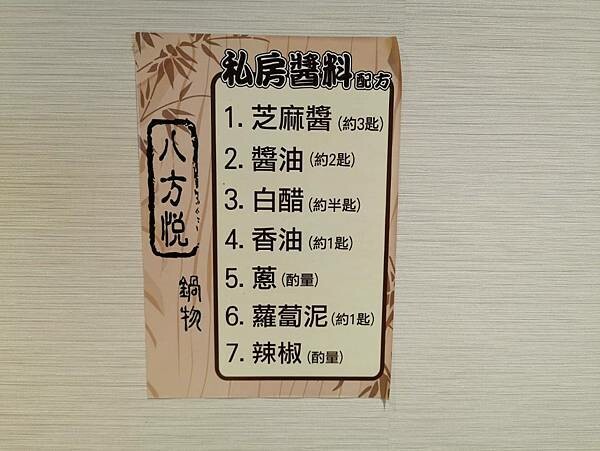 私房醬料配方
1. 芝麻醬(約3匙)
2. 醬油(約2匙)
3. 白醋(約半匙)
4. 香油(約1匙)
5. 蔥(酌量)
6. 蘿蔔泥(約1匙)
7. 辣椒(酌量)
八方悅
鍋物